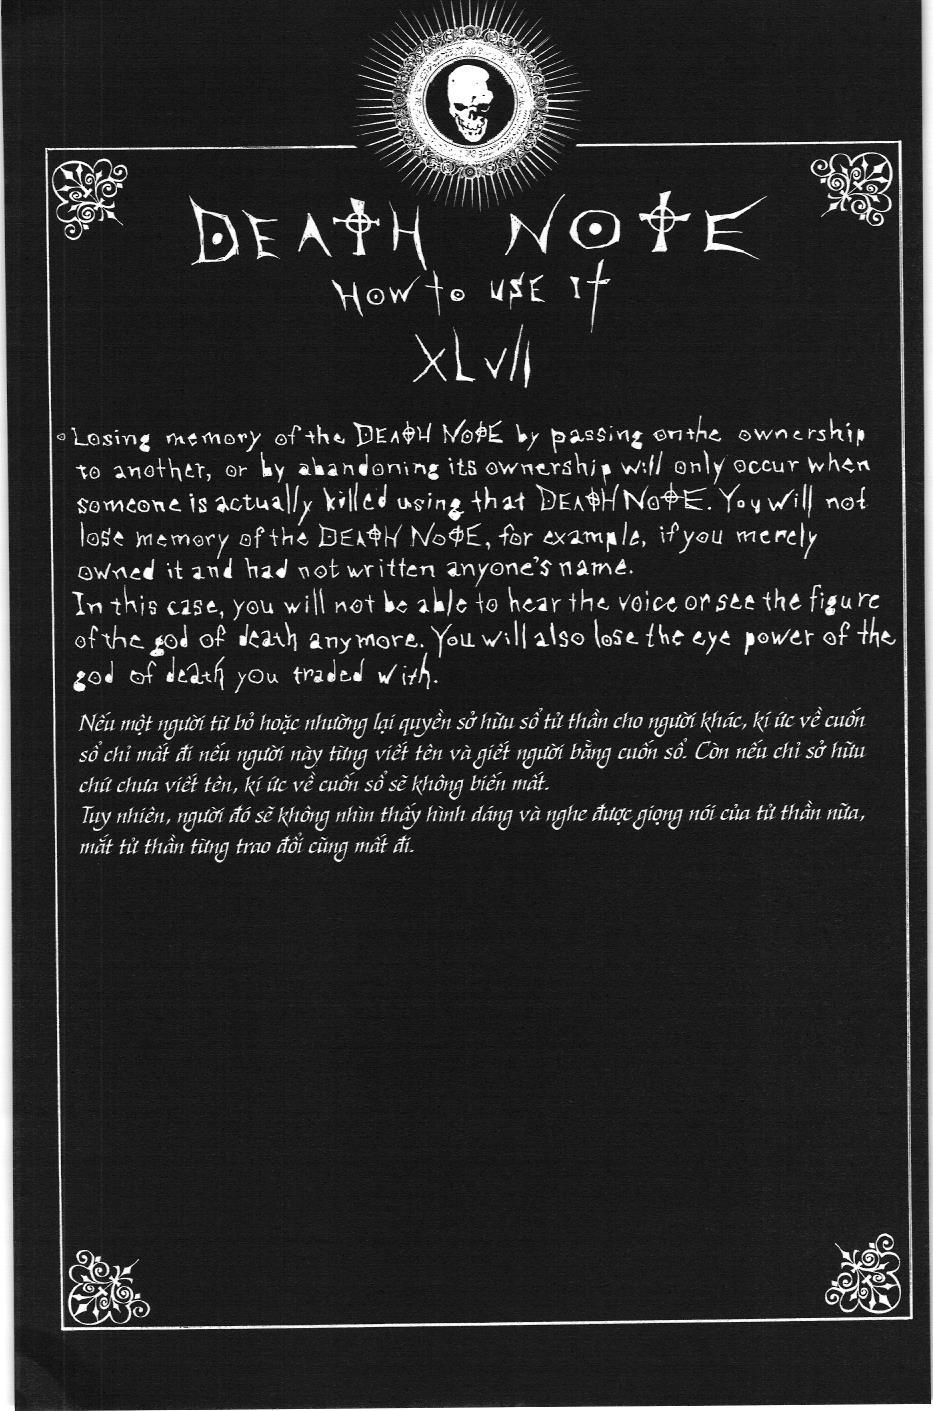 DEATH NOTE
HOW to USE It
XLVII
Losing memory of the DEATH NOTE by passing on the ownership
to another, or by abandoning its ownership will only occur when
someone is actually killed using that DEATH NOTE. You will not
lose memory of the DEATH NOTE, for example, if you merely
owned it and had not written anyone's name.
In this case, you will not be able to hear the voice or see the figure
of the god of death anymore. You will also lose the eye power of the
god of death you traded with.
Nếu một người từ bỏ hoặc nhường lại quyền sở hữu sổ tử thần cho người khác, kí ức về cuốn
sổ chỉ mất đi nếu người này từng viết tên và giết người bằng cuốn sổ. Còn nếu chỉ sở hữu
chứ chưa viết tên, kí ức về cuốn sổ sẽ không biến mất.
Tuy nhiên, người đó sẽ không nhìn thấy hình dáng và nghe được giọng nói của tử thần nữa,
mắt tử thần từng trao đổi cũng mất đi.